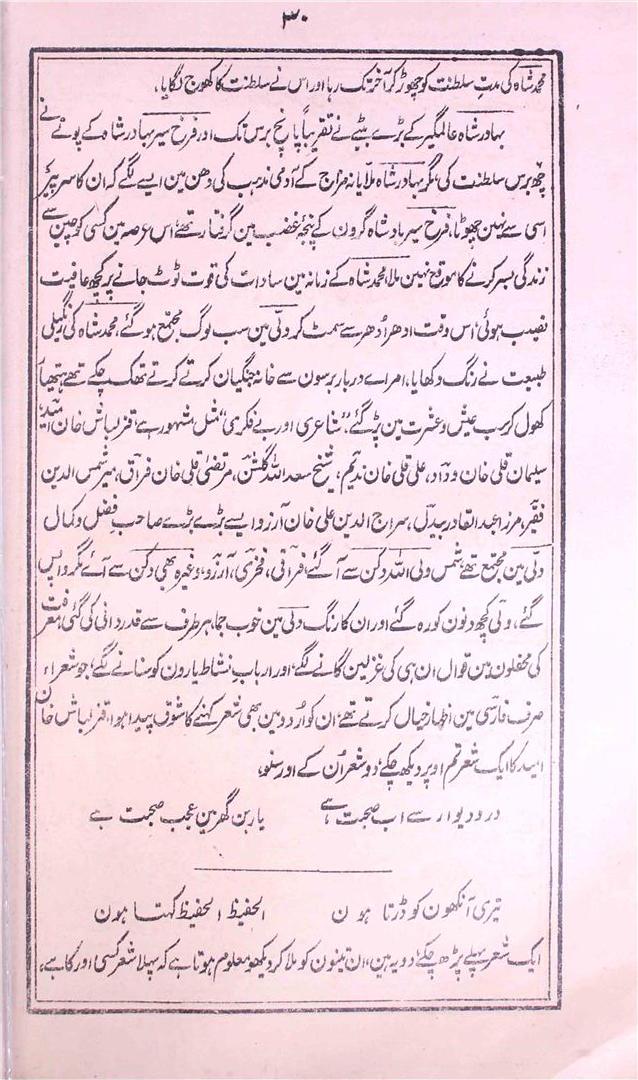 ۳۰
محمد شاہ کی مدتِ سلطنت کو چھوڑ کر آخر تک رہا اور اس نے سلطنت کا کھوج لگایا،
بہادر شاہ عالمگیر کے بڑے بیٹے نے تقریباً پانچ برس تک اور فرخ سیر بہادر شاہ کے پوتے نے
چھ برس سلطنت کی، مگر بہادر شاہ ملایانہ مزاج کے آدمی مذہب کی دھن مین ایسے لگے کہ ان کا سر پیر
اسی سے نہین چھوٹا، فرخ سیر بادشاہ گرون کے پنجۂ غضب مین گرفتار تھے، اس عرصہ مین کسی کو چین سے
زندگی بسر کرنے کا موقع نہین ملا محمد شاہ کے زمانہ مین سادات کی قوت ٹوٹ جانے پر کچھ عافیت
نصیب ہوئی، اس وقت ادھر اُدھر سے سمٹ کر دلّی مین سب لوگ مجتمع ہو گئے، محمد شاہ کی رنگیلی
طبیعت نے رنگ دکھایا، امراے دربار برسون سے خانہ جنگیان کرتے کرتے تھک چکے تھے ہتھیار
کھول کر سب عیش و عشرت مین پڑ گئے، "شاعری اور بے فکری" مثل مشہور ہے، قزلباش خان امید،
سلیمان قلی خان وداد، علی قلی خان ندیم، شیخ سعد اللہ گلشن، مرتضیٰ قلی خان فراق، میر شمس الدین
فقیر، مرزا عبد القادر بیدل، سراج الدین علی خان آرزو ایسے بڑے بڑے صاحبِ فضل و کمال
دلّی مین مجتمع تھے، شمس ولی اللہ دکن سے آ گئے، فراقی، فخری، آرزو، وغیرہ بھی دکن سے آئے مگر واپس
گئے، ولی کچھ دنون کو رہ گئے اور ان کا رنگ دلی مین خوب جما، ہر طرف سے قدردانی کی گئی، معرفت
کی محفلون مین قوال ان ہی کی غزلین گانے لگے، اور اربابِ نشاط یارون کو سنانے لگے، جو شعراء
صرف فارسی مین اظہارِ خیال کرتے تھے، ان کو اُردو مین بھی شعر کہنے کا شوق پیدا ہوا، قزلباش خان
امید کا ایک شعر تم اوپر دیکھ چکے، دو شعر اُن کے اور سنو،
در و دیوار سے اب صحبت ہے یار بن گھر مین عجب صحبت ہے
تیری آنکھون کو ڈرتا ہون الحفیظ الحفیظ کہتا ہون
ایک شعر پہلے پڑھ چکے، دو یہ ہین، ان تینون کو ملا کر دیکھو، معلوم ہوتا ہے کہ پہلا شعر کسی اور کا ہے،